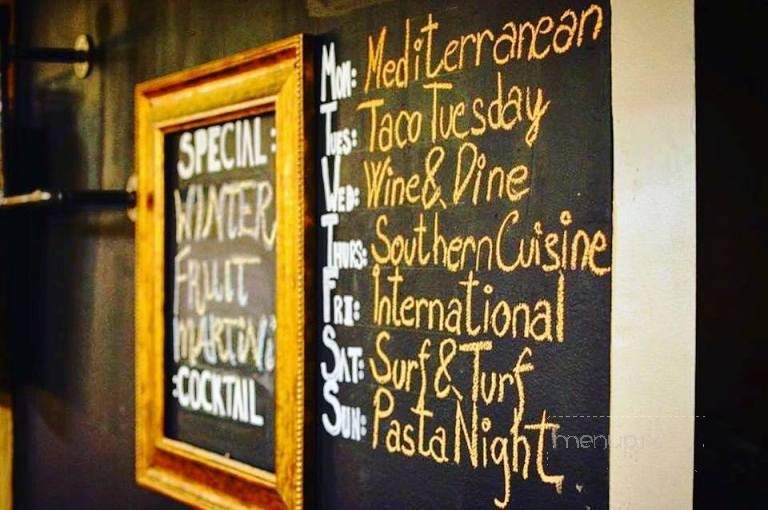 SPECIAL:
WINTER
FRUIT
MARTINI
:COCKTAIL
Mon: Mediterranean
Tues: Taco Tuesday
Wed: Wine & Dine
Thurs: Southern Cuisine
Fri: International
Sat: Surf & Turf
Sun: Pasta Night